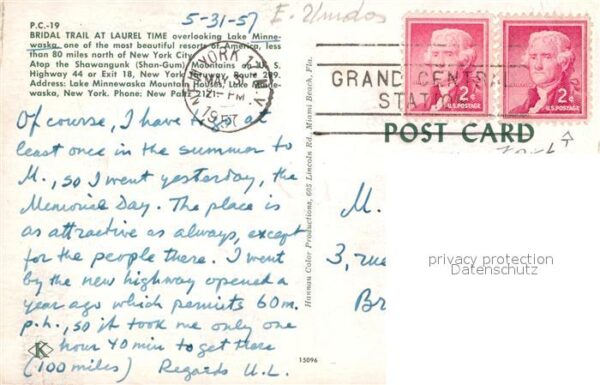 5-31-57
P.C.-19
BRIDAL TRAIL AT LAUREL TIME overlooking Lake Minne-
waska, one of the most beautiful resorts of America, less
than 80 miles north of New York City
Atop the Shawangunk (Shan-Gum) Mountains U.S.
Highway 44 or Exit 18, New York Thruway, Route 299.
Address: Lake Minnewaska Mountain Houses, Lake Minne-
waska, New York. Phone: New Paltz
NEW YORK, N.Y.
PM
1957
GRAND CENTRAL
STATION
2¢
U.S. POSTAGE
2¢
U.S. POSTAGE
POST CARD
Of course, I have to go at
least once in the summer to
M., so I went yesterday, the
Memorial Day. The place is
as attractive as always, except
for the people there. I went
by the new highway opened a
year ago which permits 60 m.
p.h., so it took me only one
hour 40 min to get there
(100 miles) Regards U.L.
K
15096
Hannau Color Productions, 605 Lincoln Rd. Miami Beach, Fla.
M.
3, rue
Br
privacy protection
Datenschutz